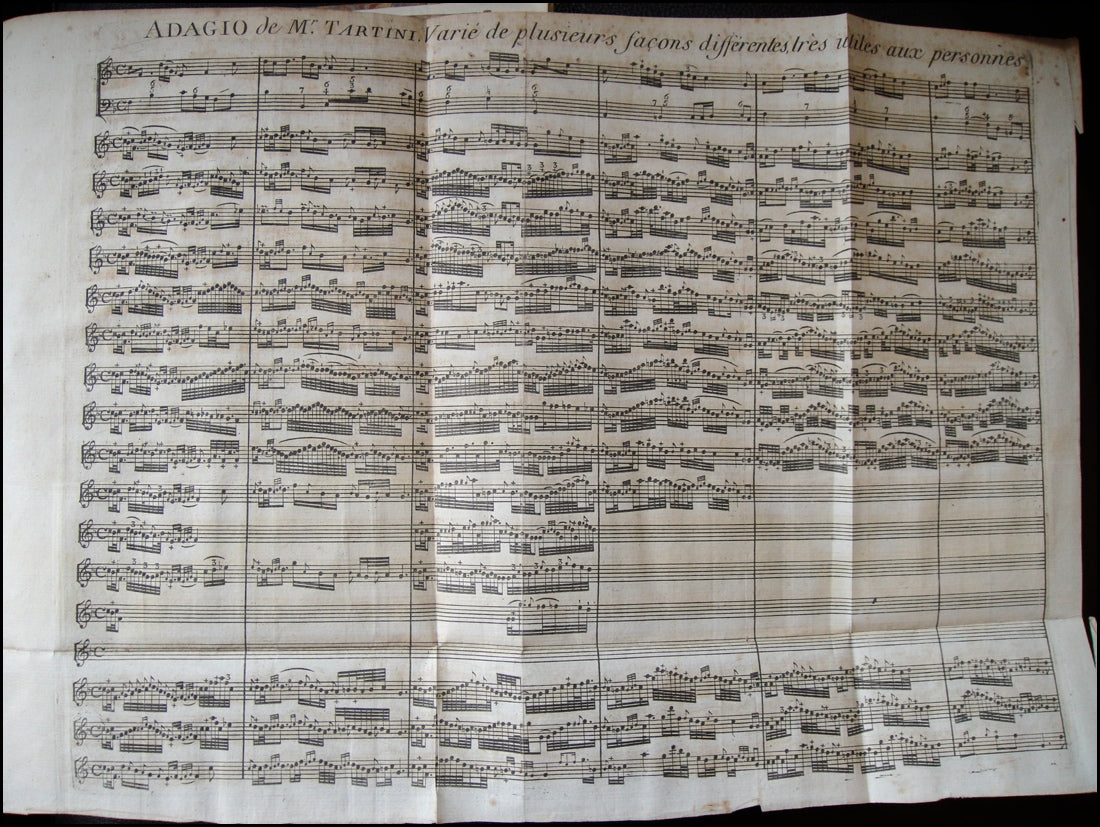 ADAGIO de Mr. TARTINI. Varié de plusieurs façons différentes, très utiles aux personnes